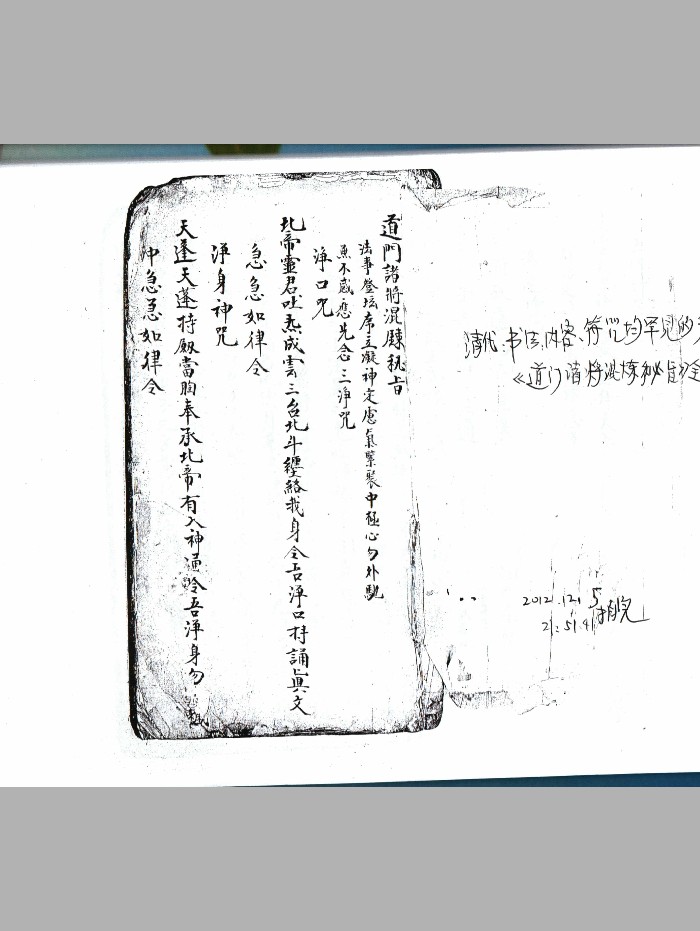 道門諸將混鍊秘旨
法事登坛席主凝神定慮氣聚裝中極心勿外馳
無不感應先念三淨咒
淨口咒
北帝靈君吐炁成雲三台北斗纏絡我身令吾淨口持誦眞文
急急如律令
淨身神咒
天蓬天蓬持厭當胸奉承北帝有入神 吾淨身勿
沖急急如律令
清代、书法、内容、符咒均罕见的
《道门诸将混炼秘旨》全
2012.12.5
2:51.41